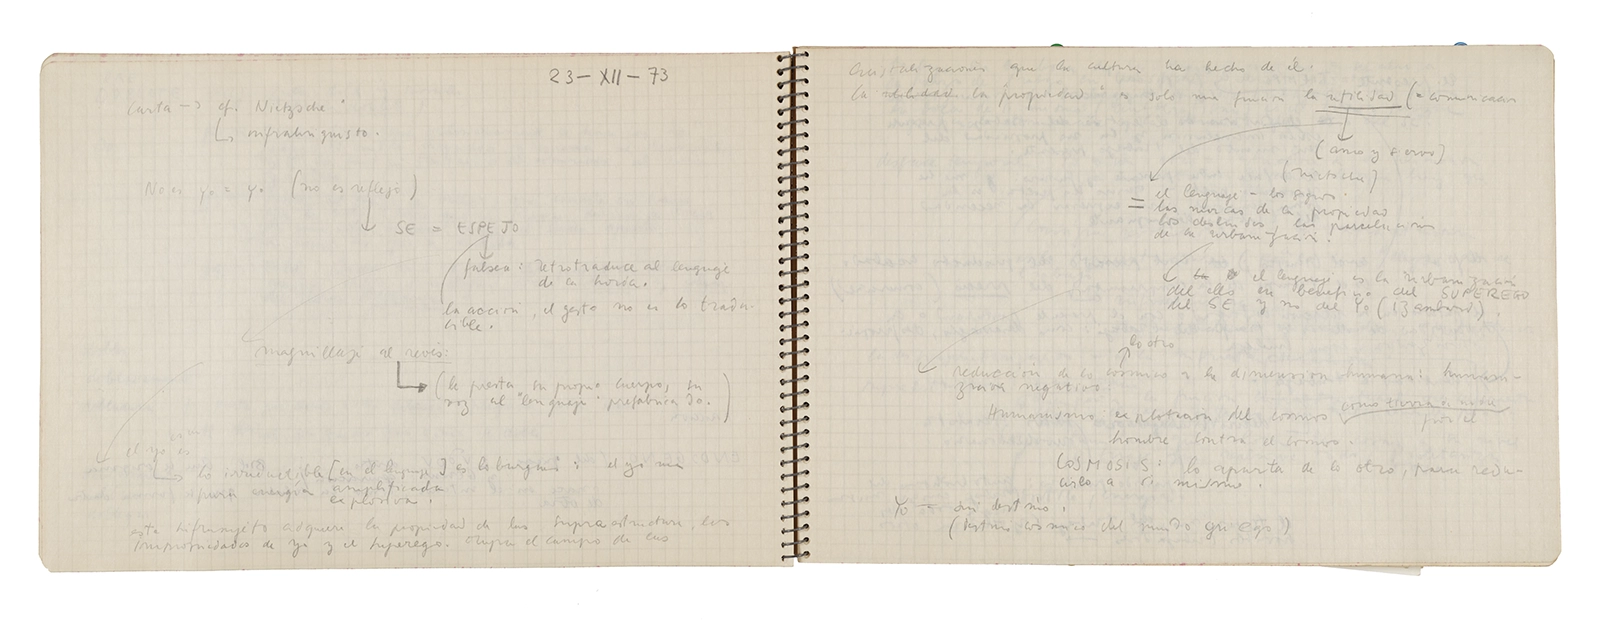 23 - XII - 73
Carta → cf. Nietzsche
No es yo = yo (no es reflejo)
SE = ESPEJO
falsea: retrotraduce al lenguaje
de la horda.
la acción, el gesto no es lo tradu-
cible.
maquillaje al revés:
(le presta su propio cuerpo, su
voz al "lenguaje" prefabricado.)
el yo es
lo irreductible [en el lenguaje] es lo : el yo una
pura energía amplificada
explosiva.
esta adquiere la propiedad de las supraestructuras, los
de yo y el superego. ocupa el campo de las
que la cultura ha hecho de él.
la propiedad es solo una función la utilidad (=
(amo y siervo)
(Nietzsche)
el lenguaje - los signos.
= las marcas de la propiedad
los deslindes las
de la urbanización.
el lenguaje es la urbanización
del ello en beneficio del SUPEREGO
del SE y no del Yo
lo otro
reducción de lo cósmico a la dimensión humana: humani-
zación negativa.
Humanismo explotación del cosmos como tierra a por el
hombre contra el cosmos.
COSMOSIS: lo aparta de lo otro, para redu-
cirlo a sí mismo.
Yo - sin destino.
(destino cósmico del mundo que ego)